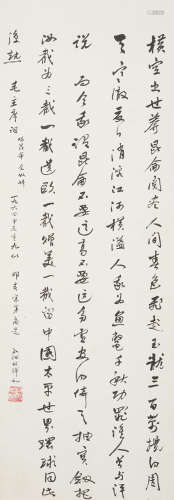 橫空出世莽崑崙閱盡人間春色飛起玉龍三百萬攪得周
天寒徹夏日消溶江河橫溢人或為魚鱉千秋功罪誰人曾與評
說 而今我謂崑崙不要這高不要這多雪安得倚天抽寶劍把
汝裁為三截一截遺歐一截贈美一截留中國太平世界環球同此
涼熱 毛主席詞